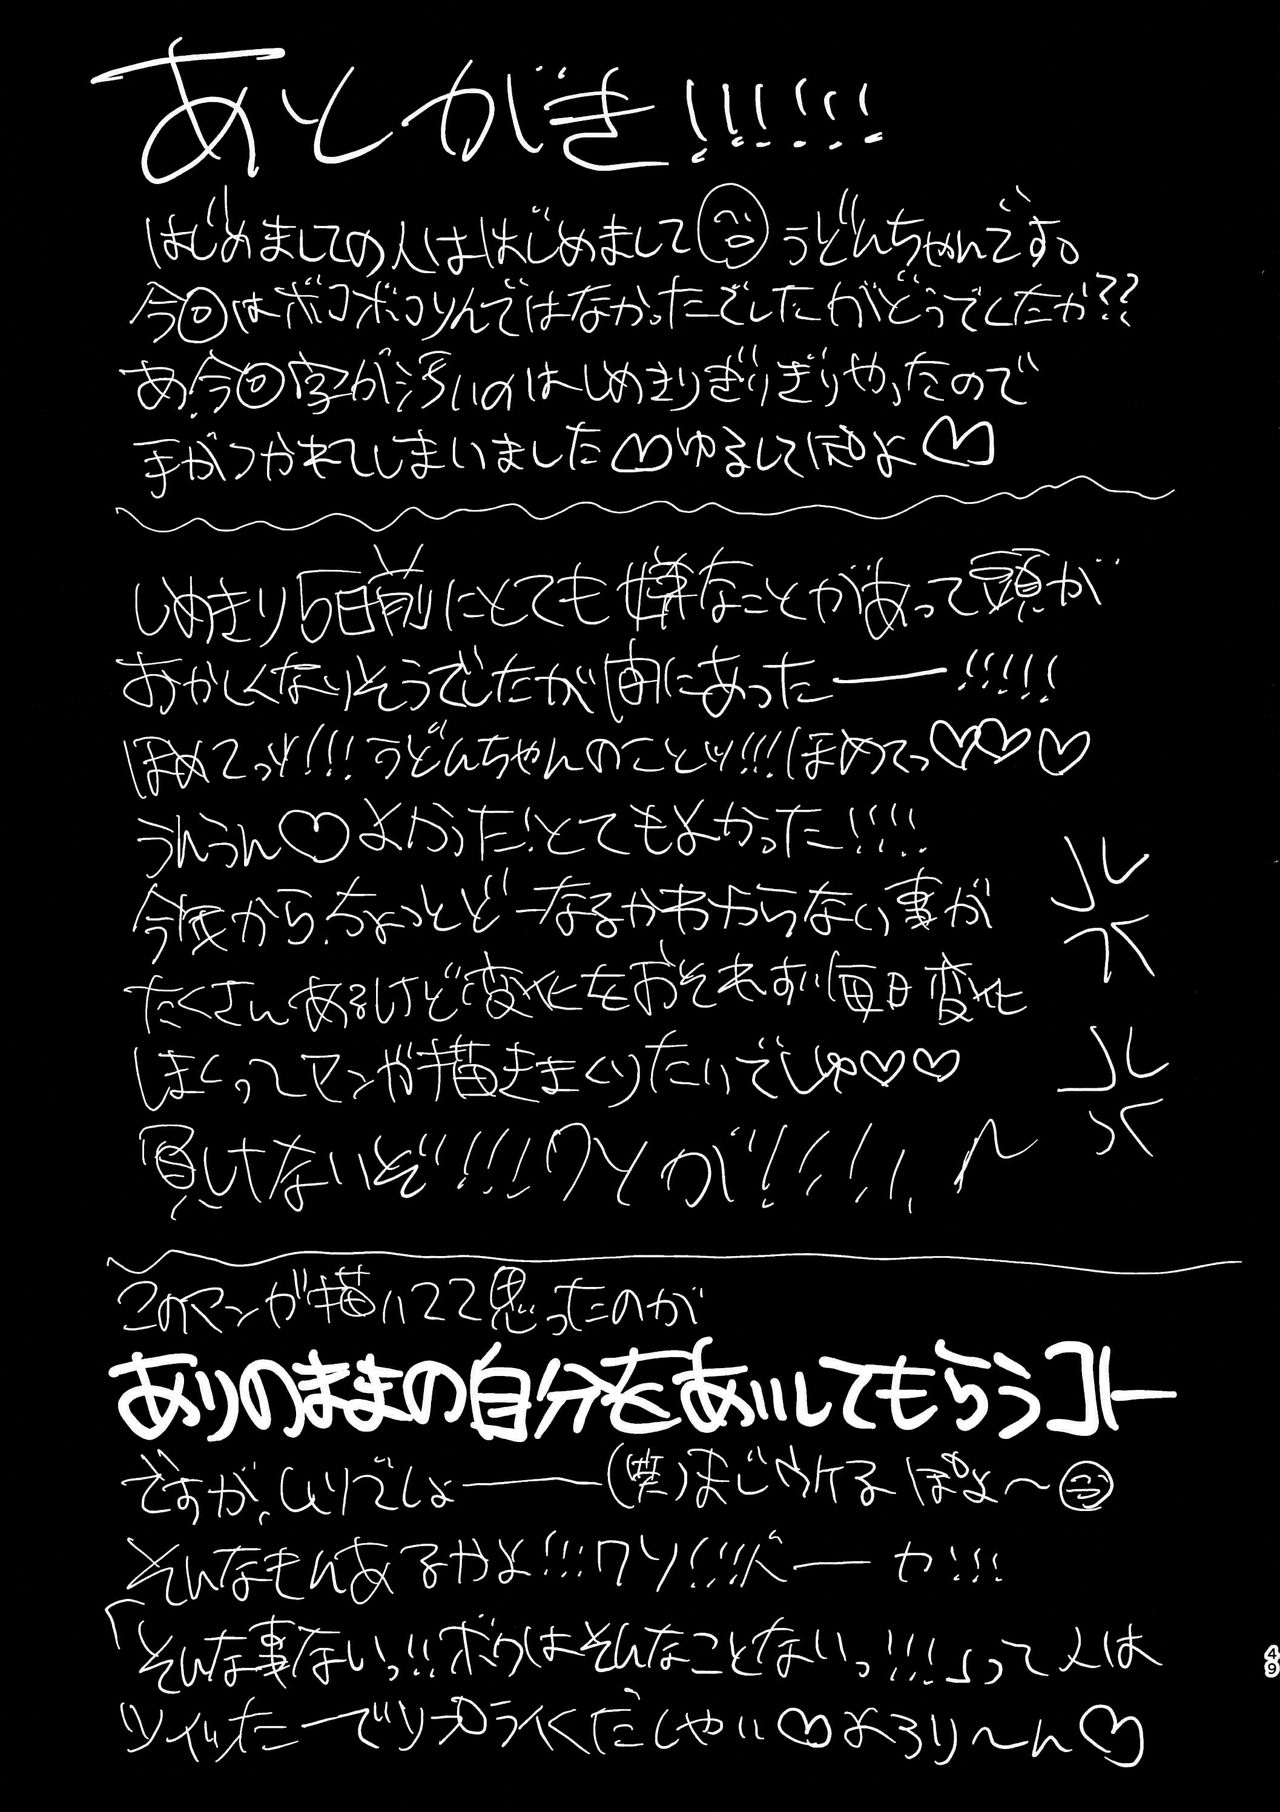 あとがき!!!!!!
はじめましての人ははじめまして うどんちゃんです。
今回はボコボコりんではなかったでしたがどうでしたか??
あ、今回字が汚いのはしめきりぎりぎりやったので
手がつかれてしまいました♡ゆるしてぽよ♡
しめきり5日前にとても嫌なことがあって頭が
おかしくなりそうでしたが間にあったーー!!!!!
ほめてっッ!!!うどんちゃんのことッ!!!ほめてっ♡♡♡
うんうん♡よかった!とてもよかった!!!!
今後から、ちょっとどーなるかわからない事が
たくさんあるけど変化をおそれず!毎日変化
しまくってマンガ描きまくりたいでしゅ♡♡
負けないぞ!!!!クソが!!!!
このマンガ描いてて思ったのが
ありのままの自分をあいしてもらうコト
ですが、ムリでしょーー(笑)まじウケるぽよ〜
そんなもんあるかよ!!!クソ!!!バーカ!!!
「そんな事ないっ!!ボクはそんなことないっ!!!」って人は
ツイッたーでリプライくだしゃい♡よろり〜ん♡
49